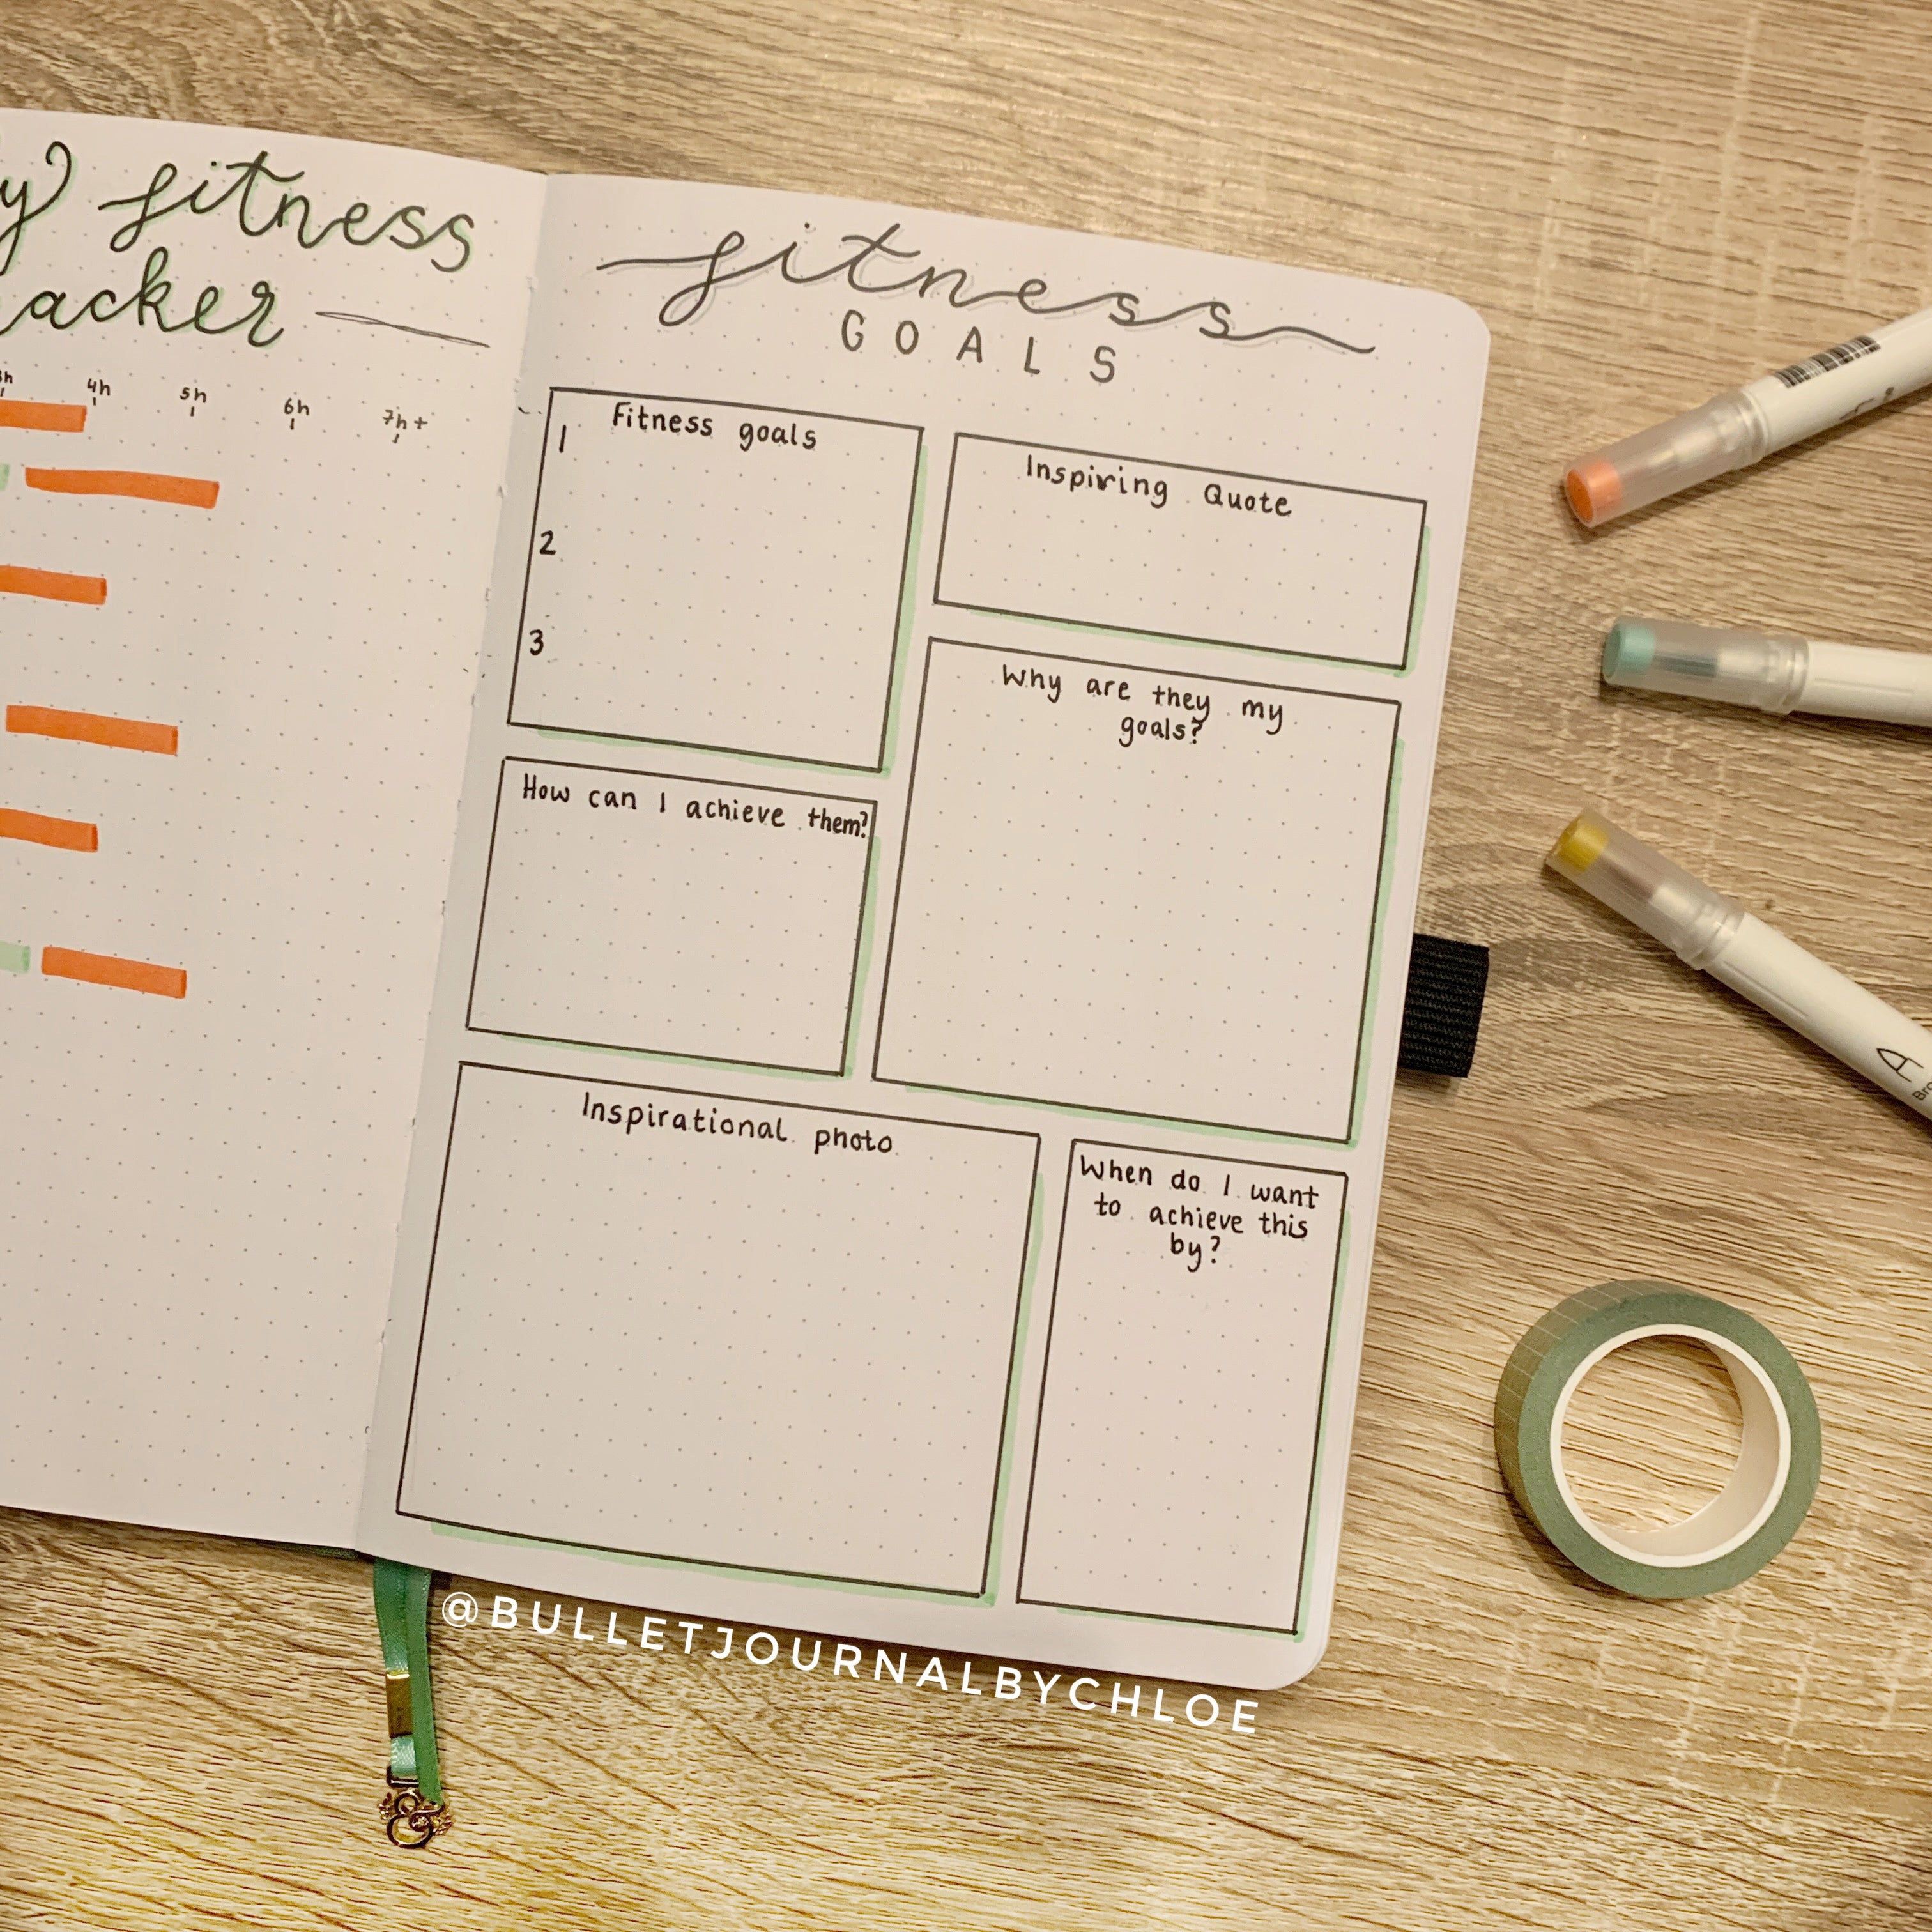 y fitness
acker
3h 4h 5h 6h 7h+
fitness
GOALS
Fitness goals
1
2
3
Inspiring Quote
Why are they my
goals?
How can I achieve them?
Inspirational photo
When do I want
to achieve this
by?
@BULLETJOURNALBYCHLOE